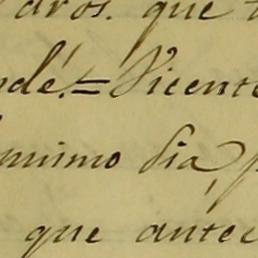 aros. que
ndé. = Vicente
mimo dia, p
que antec